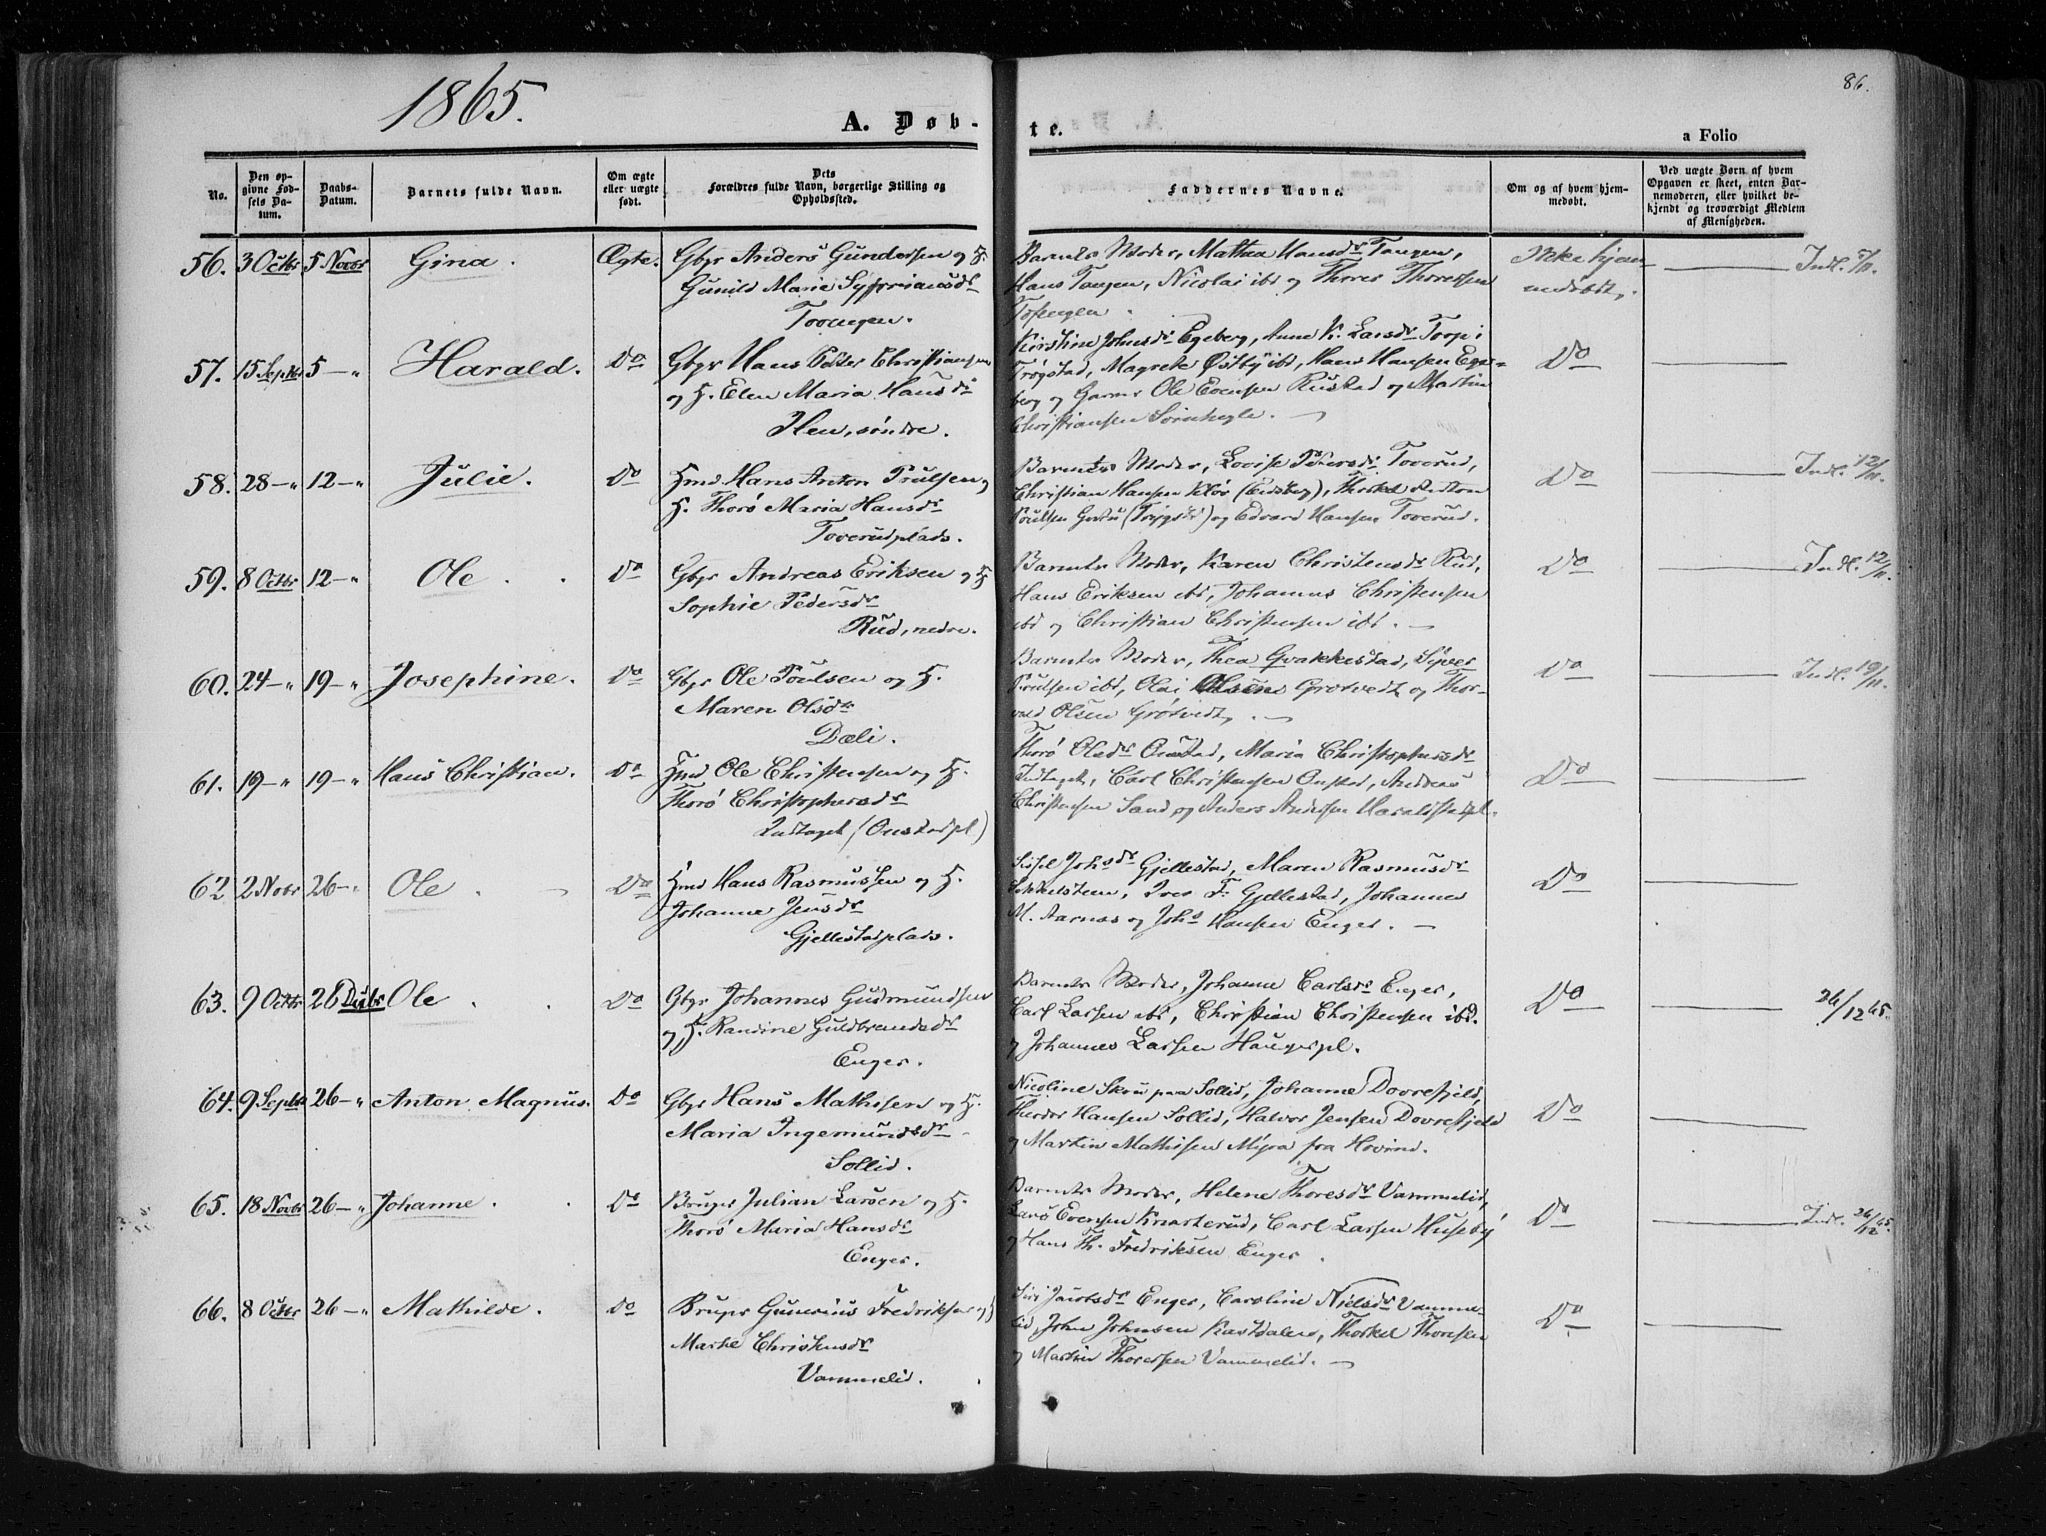 1865.
86.
A. Døb-
te.
a Folio
No.
Den op-
givne Fød-
sels Da-
tum.
Daabs-
Datum.
Barnets fulde Navn.
Om ægte
eller uægte
født.
Dets
Forældres fulde Navn, borgerlige Stilling og
Opholdssted.
Faddernes Navne.
Om og af hvem hjem-
medøbt.
Ved uægte Børn af hvem
Opgaven er skeet, enten Bar-
nemoderen, eller hvilket be-
kjendt og troværdigt Medlem
af Menigheden.
56. 3 Octbr 5 Novbr Gina. Ægte. Gbr Anders Gundersen og H.
Gunild Maria
Toverngen.
Barnets Moder, Mathea Hansdr Tangen,
Hans Tangen, Nicolai ibd og Thores Thoresen
Ikke hjem-
medøbt,
Indl. 5/11.
57. 15 Septbr 5 — " Harald. Do Gbr Hans Peter Christiansen
og H. Elen Maria Hansdr
Hen, søndre.
Kirstine Johnsdr Egeberg, Anne K. Larsdr Torp i
Trøgstad, Magrete Østby ibd, Hans Hansen Ege-
berg og Garver Ole Evensen Rustad og Martin
Christiansen
Do
58. 28 — " 12 — " Julie. Do Hmd Hans Anton Poulsen og
H. Thorø Maria Hansdr
Toverudplads.
Barnets Moder, Lovise Petersdr Toverud,
Christian Hansen (Eidsberg), Thorkel Anton
Poulsen og Edvard Hansen Toverud.
Do
Indl. 12/11.
59. 8 Octbr 12 — " Ole. Do Gbr Andreas Eriksen og H
Sophie Pedersdr
Rud, nedre.
Barnets Moder, Karen Christensdr Rud,
Hans Eriksen ibd, Johannes Christensen
ibd og Christian Christensen ibd. —
Do
Indl. 12/11.
60. 24 — " 19 — " Josephine. Do Gbr Ole Poulsen og H.
Maren Olsdr
Dæli.
Barnets Moder, Thea Qvakkestad, Syver
Poulsen ibd, Olai Olsen Grotvedt og Thor-
vald Olsen Grotvedt, . —
Do
Indl. 19/11.
61. 19 — " 19 — " Hans Christian. Do Hmd Ole Christensen og H.
Thorø Christophersdr
Indtaget (Onstadpl)
Thorø Olsdr Onstad, Maria Christophersdr
Indtaget, Carl Christensen Onstad, Anders
Christensen Sand og Anders Andersen Haraldstadpl.
Do
62 2 Novbr 26 — " Ole. Do Hmd Hans Rasmussen og H.
Johanne Jensdr
Gjellestadplads.
Sissel Johsdr Gjellestad, Maren Rasmusdr
Sekkelsteen, Iver F. Gjellestad, Johannes
M. Aarnæs og Johs Hansen Enger. —
Do
63. 9 Octbr 26 Decbr Ole. Do Gbr Johannes Gudmundsen
og H. Randine Guldbrandsdr
Enger.
Barnets Moder, Johanne Carlsdr Enger,
Carl Larsen ibd, Christian Christensen ibd.
og Johannes Larsen Haugerpl.
Do
26/12 65.
64. 9 Septbr 26 — " Anton Magnus. Do Gbr Hans Mathisen og H.
Maria Ingemundsdr
Sollid.
Nicoline Skou paa Sollid, Johanne Dovrefjeld,
Theodor Hansen Sollid, Halvor Jensen Dovrefjeld
og Martin Mathisen Myra fra Hovind.
Do
65. 18 Novbr 26 — " Johanne. Do Bruger Julian Larsen og H.
Thorø Maria Hansdr
Enger.
Barnets Moder, Helene Thoresdr Vammelid,
Lars Evensen Knatterud, Carl Larsen Huseby
og Hans Th. Fredriksen Enger.
Do
Indl. 26/12 65.
66. 8 Octbr 26 — " Mathilde. Do Bruger Gunerius Fredriksen og H
Marte Christensdr
Vammelid.
Siri Jacobsdr Enger, Caroline Nielsdr Vamme-
lid, John Johnsen Kastdalen, Thorkel Thoresen
og Martin Thoresen Vammelid. —
Do